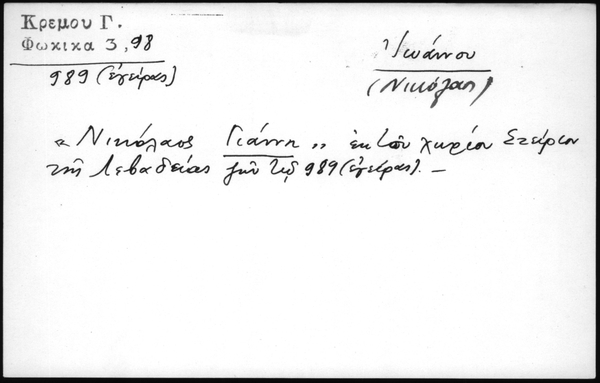 Κρεμου Γ.
Φωκικα 3, 98
989 (ἐγείρας)
Ἰωάννου
(Νικόλαος)
« Νικόλαος Γιάννη „ ἐκ τοῦ χωρίου Στείριον
τῆς Λεβαδείας 989 (ἐγείρας). –